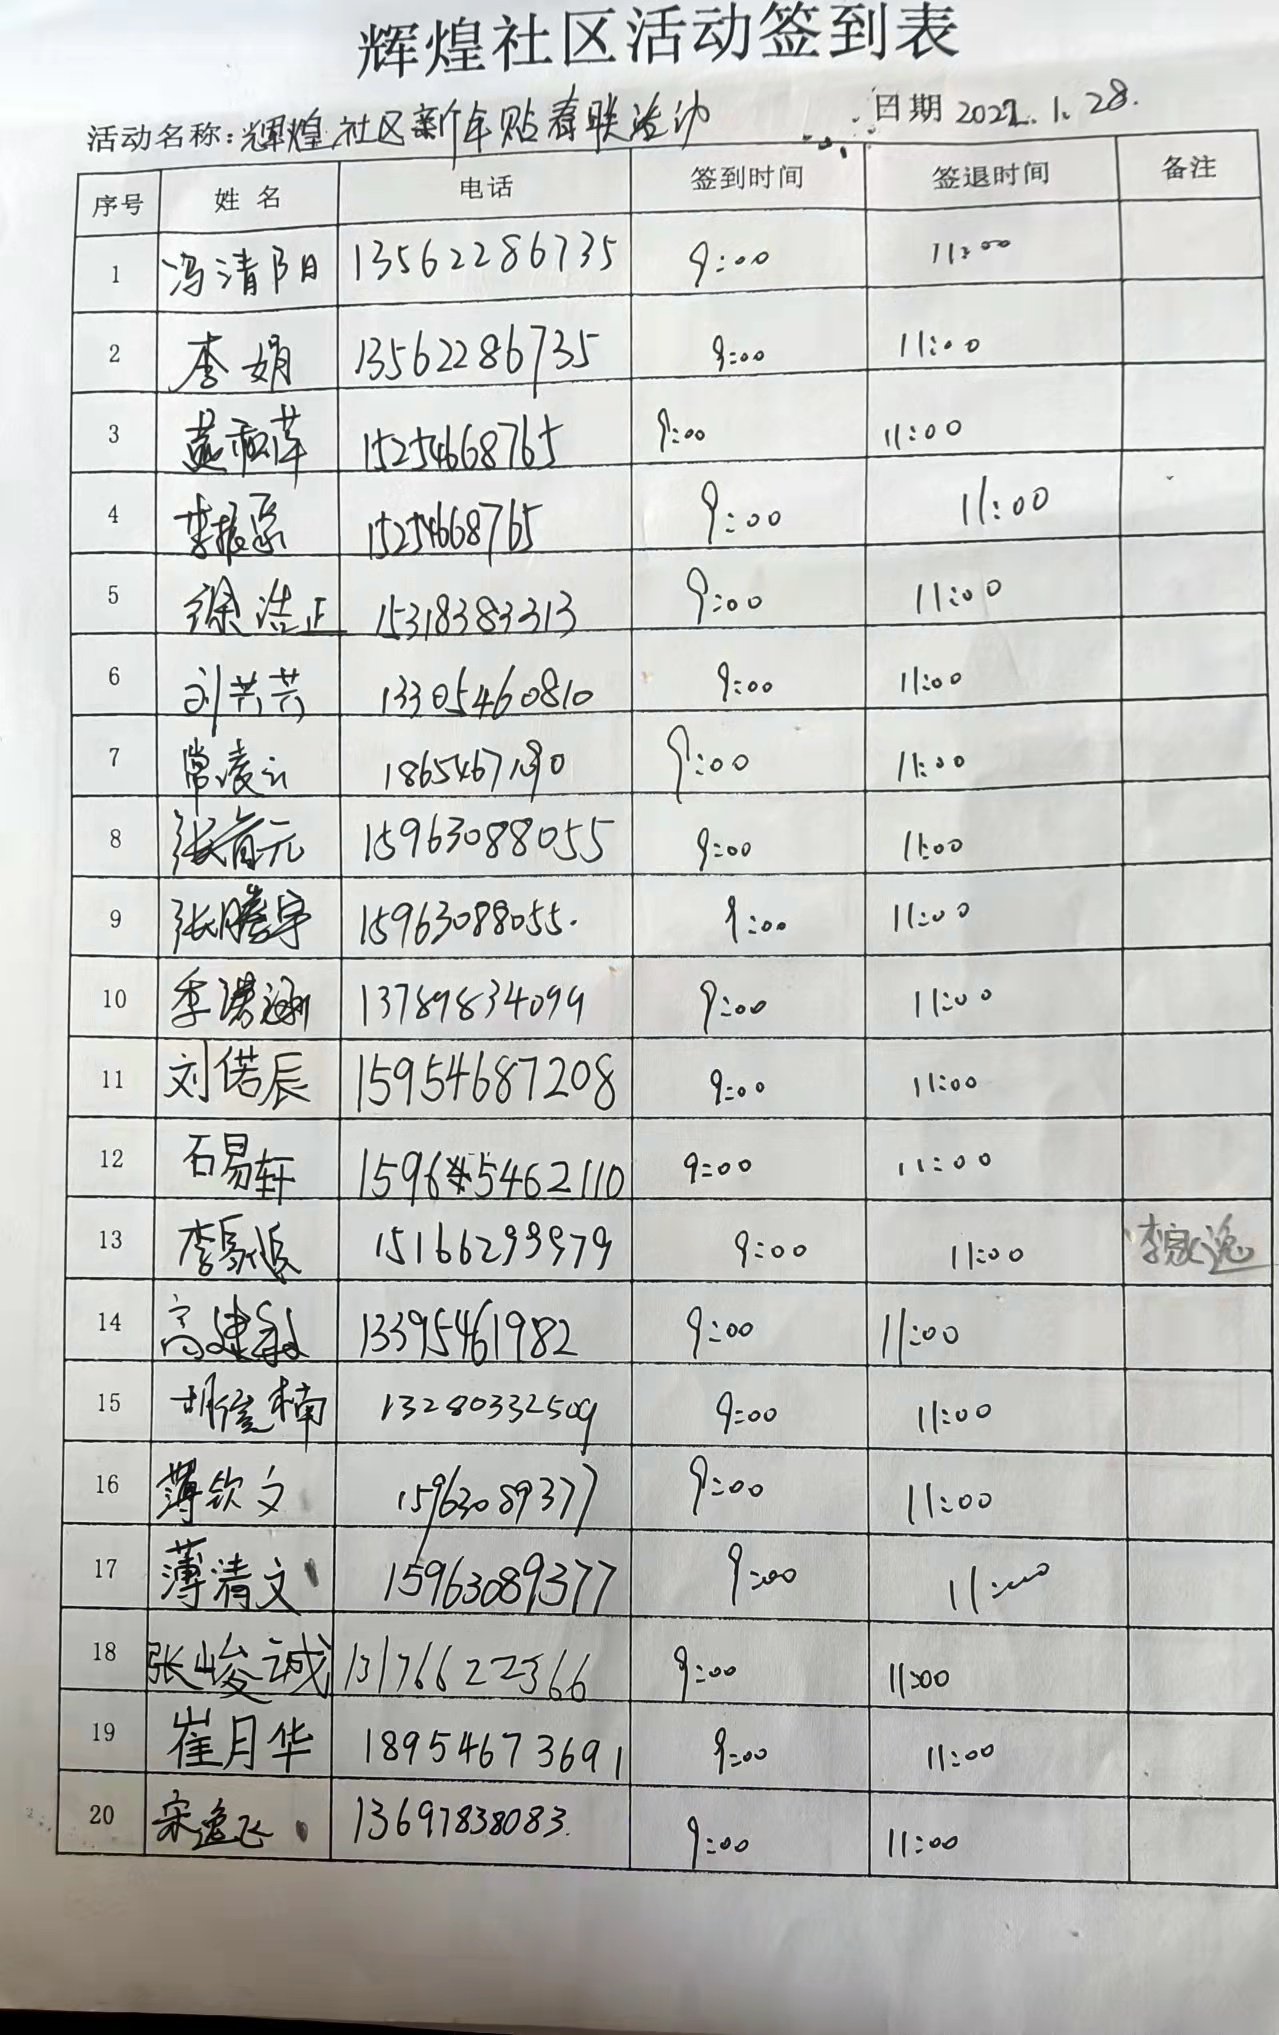 辉煌社区活动签到表
活动名称:辉煌社区新年贴春联活动 日期 2022.1.28.
序号 姓名 电话 签到时间 签退时间 备注
1 冯清阳 13562286735 9:00 11:00
2 李娟 13562286735 9:00 11:00
3 15254668765 9:00 11:00
4 李振 15254668765 9:00 11:00
5 徐浩正 15318383313 9:00 11:00
6 刘芸芸 13305460810 9:00 11:00
7 常凌云 9:00 11:00
8 张育元 15963088055 9:00 11:00
9 张腾宇 15963088055. 9:00 11:00
10 李涵 13789834099 9:00 11:00
11 刘偌辰 15954687208 9:00 11:00
12 石易轩 9:00 11:00
13 李家逸 15166299979 9:00 11:00 李家逸
14 高建毅 13395461982 9:00 11:00
15 胡信楠 13280332509 9:00 11:00
16 薄钦文 15963089377 9:00 11:00
17 薄清文 15963089377 9:00 11:00
18 张峻诚 13176622366 9:00 11:00
19 崔月华 18954673691 9:00 11:00
20 宋逸飞 13697838083. 9:00 11:00